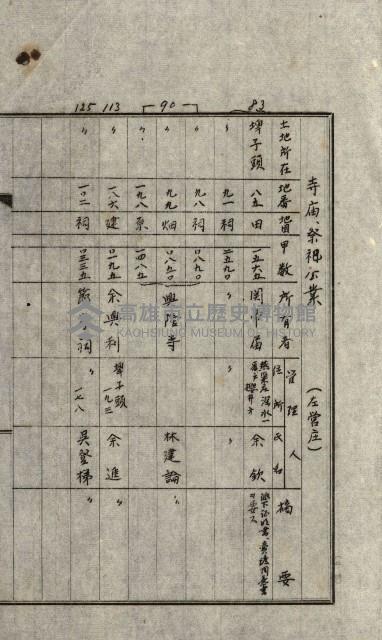 寺庙、祭祀公業
（左營庄）
土地所在 地番 地目 甲數 所有者 管理人 住所 氏名 摘要
83 埤子頭 八五 田 一五六五 余欽
〃 九一 祠 二五九〇 〃
90 〃 九八 祠 〇八九〇 興隆寺 林建論 〃
〃 九九 畑 〇八五〇
〃 一九八 原 一四八五
113 〃 一八六 建 〇一九五 余興利 埤子頭 一九三 余進 〃
125 〃 一〇二 祠 〇三三五 祠 〃 一七八 吳登梯 〃
高雄市立歷史博物館
KAOHSIUNG MUSEUM OF HISTORY